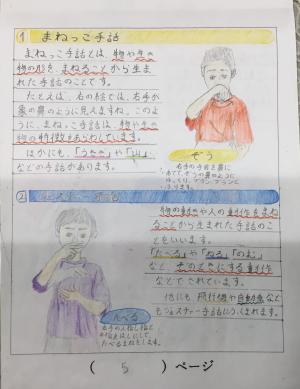 1 まねっこ手話
まねっこ手話とは、物や生き
物の形をまねることから生ま
れた手話のことです。
たとえば、右の絵では、右手が
象の鼻のように見えますね。この
ように、まねっこ手話は、物や生き
物の特徴をあらわしています。
ほかにも、「うさぎ」や「山」
などの手話があります。
ぞう
右手の手首を鼻に
あて、ぞうの鼻のように
ゆっくり、ブランブランと
ふります。
2 ジェスチャー手話
物の動きや人の動作をまねる
ことから生まれた手話のこ
とをいいます。
「たべる」や「ねる」「のむ」
など、そのときにする動作
などでできています。
他にも、飛行機や自動車なども
ジェスチャー手話にふくまれます。
たべる
右手の人指し指と
中指をはしにして、
たべるまねをします。
( 5 ) ページ